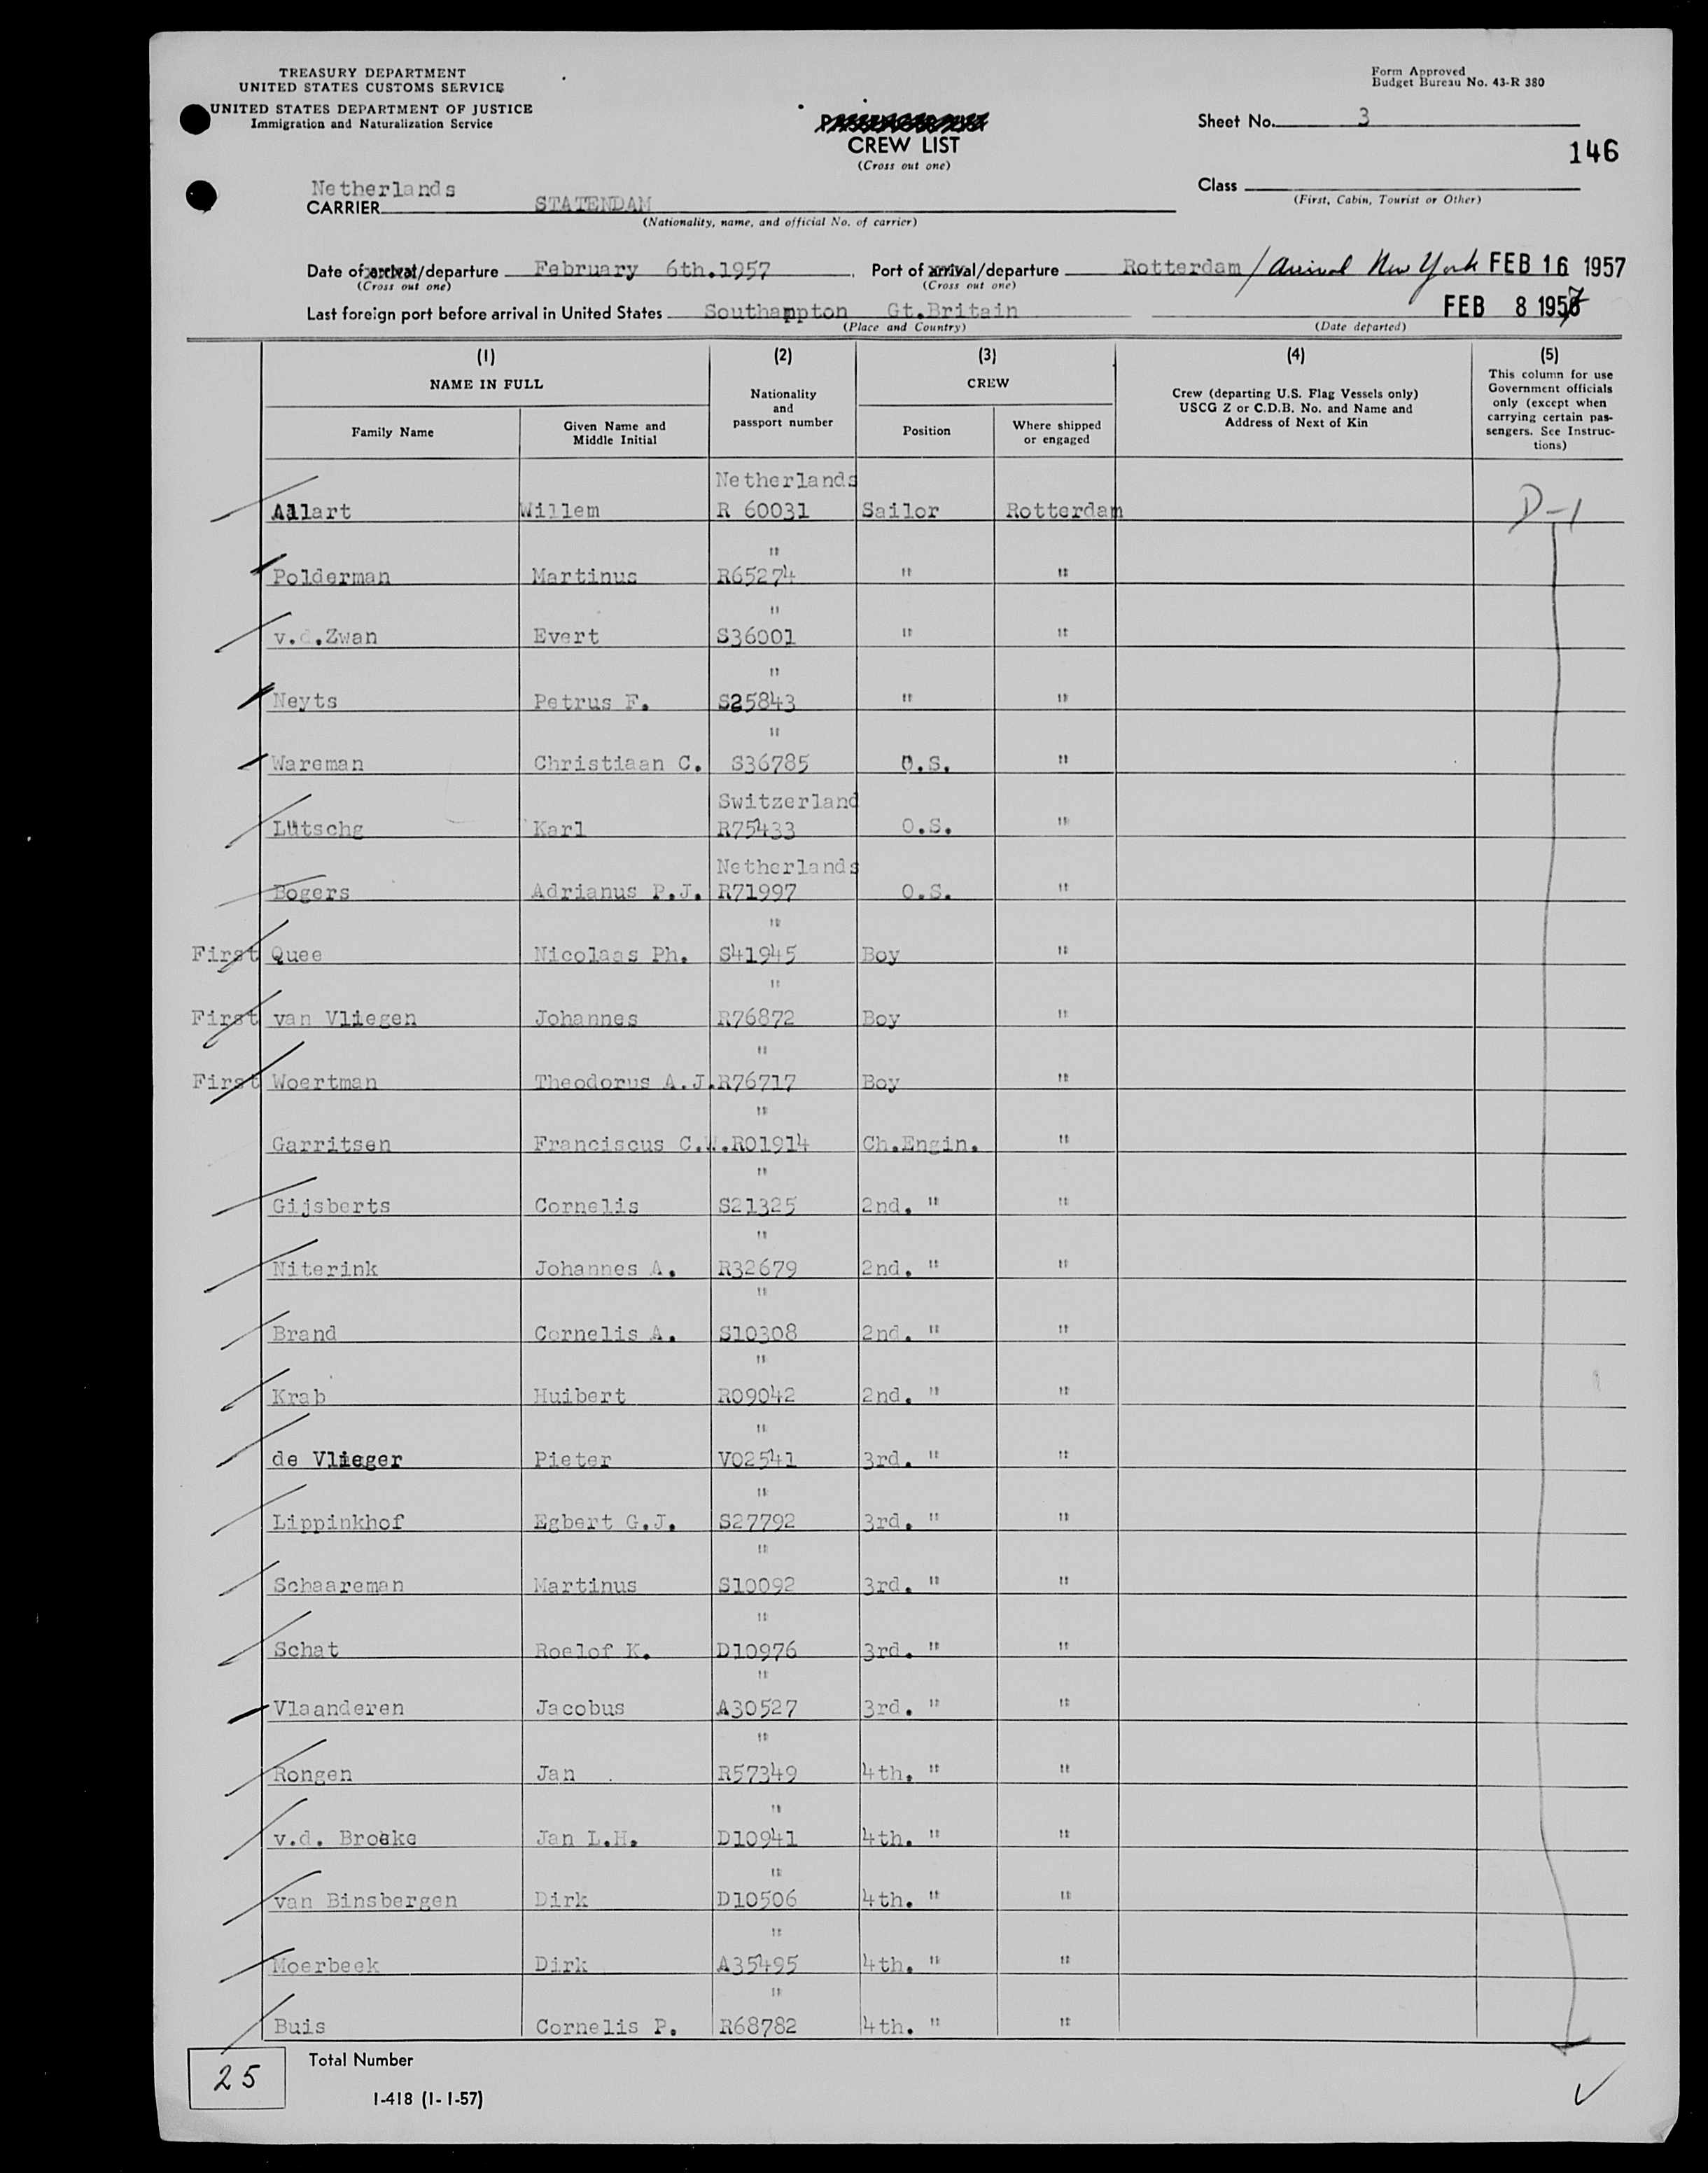 TREASURY DEPARTMENT
UNITED STATES CUSTOMS SERVICE
UNITED STATES DEPARTMENT OF JUSTICE
Immigration and Naturalization Service
Form Approved
Budget Bureau No. 43-R 380
CREW LIST
(Cross out one)
Sheet No. 3
146
Class
(First, Cabin, Tourist or Other)
Netherlands
CARRIER STATENDAM
(Nationality, name, and official No. of carrier)
Date of arrival/departure February 6th.1957 Port of arrival/departure Rotterdam / Arrival New York FEB 16 1957
(Cross out one) (Cross out one)
Last foreign port before arrival in United States Southampton Gt.Britain FEB 8 1957
(Place and Country) (Date departed)
(1) (2) (3) (4) (5)
NAME IN FULL Nationality and passport number CREW Crew (departing U.S. Flag Vessels only) USCG Z or C.D.B. No. and Name and Address of Next of Kin This column for use Government officials only (except when carrying certain passengers. See Instructions)
Family Name Given Name and Middle Initial Position Where shipped or engaged
Netherlands
Allart Willem R 60031 Sailor Rotterdam D-1
"
Polderman Martinus R65274 " "
"
v.d.Zwan Evert S36001 " "
"
Neyts Petrus F. S25843 " "
"
Wareman Christiaan C. S36785 O.S. "
Switzerland
Lütschg Karl R75433 O.S. "
Netherlands
Bogers Adrianus P.J. R71997 O.S. "
"
First Quee Nicolaas Ph. S41945 Boy "
"
First van Vliegen Johannes R76872 Boy "
"
First Woertman Theodorus A.J. R76717 Boy "
"
Garritsen Franciscus C.W. R01914 Ch.Engin. "
"
Gijsberts Cornelis S21325 2nd. " "
"
Niterink Johannes A. R32679 2nd. " "
"
Brand Cornelis A. S10308 2nd. " "
"
Krab Huibert R09042 2nd. " "
"
de Vlieger Pieter V02541 3rd. " "
"
Lippinkhof Egbert G.J. S27792 3rd. " "
"
Schaareman Martinus S10092 3rd. " "
"
Schat Roelof K. D10976 3rd. " "
"
Vlaanderen Jacobus A30527 3rd. " "
"
Rongen Jan R57349 4th. " "
"
v.d. Broeke Jan L.H. D10941 4th. " "
"
van Binsbergen Dirk D10506 4th. " "
"
Moerbeek Dirk A35495 4th. " "
"
Buis Cornelis P. R68782 4th. " "
25 Total Number
I-418 (1-1-57)